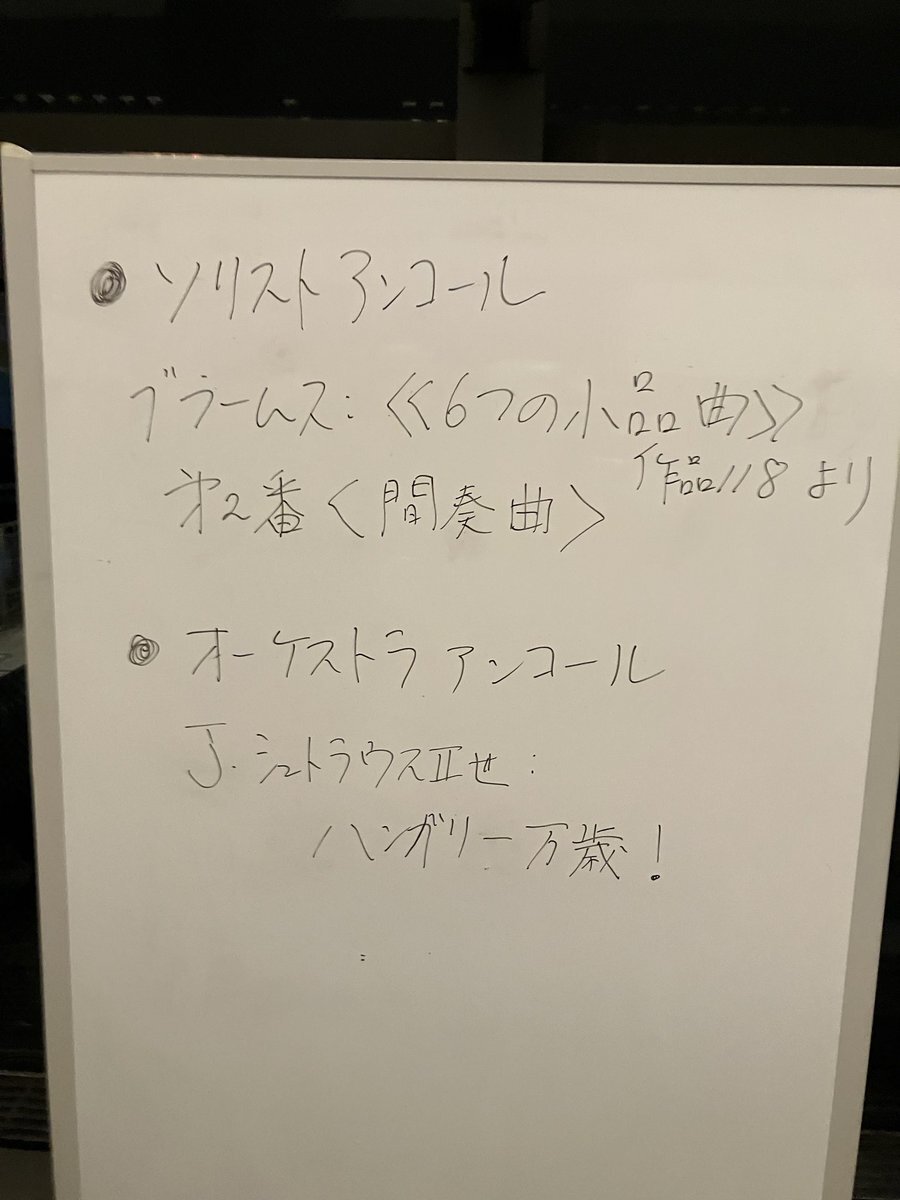 ● ソリスト アンコール
ブラームス:《6つの小品曲》
作品118 より
第2番〈間奏曲〉
● オーケストラ アンコール
J.シュトラウスⅡせ:
ハンガリー万歳!